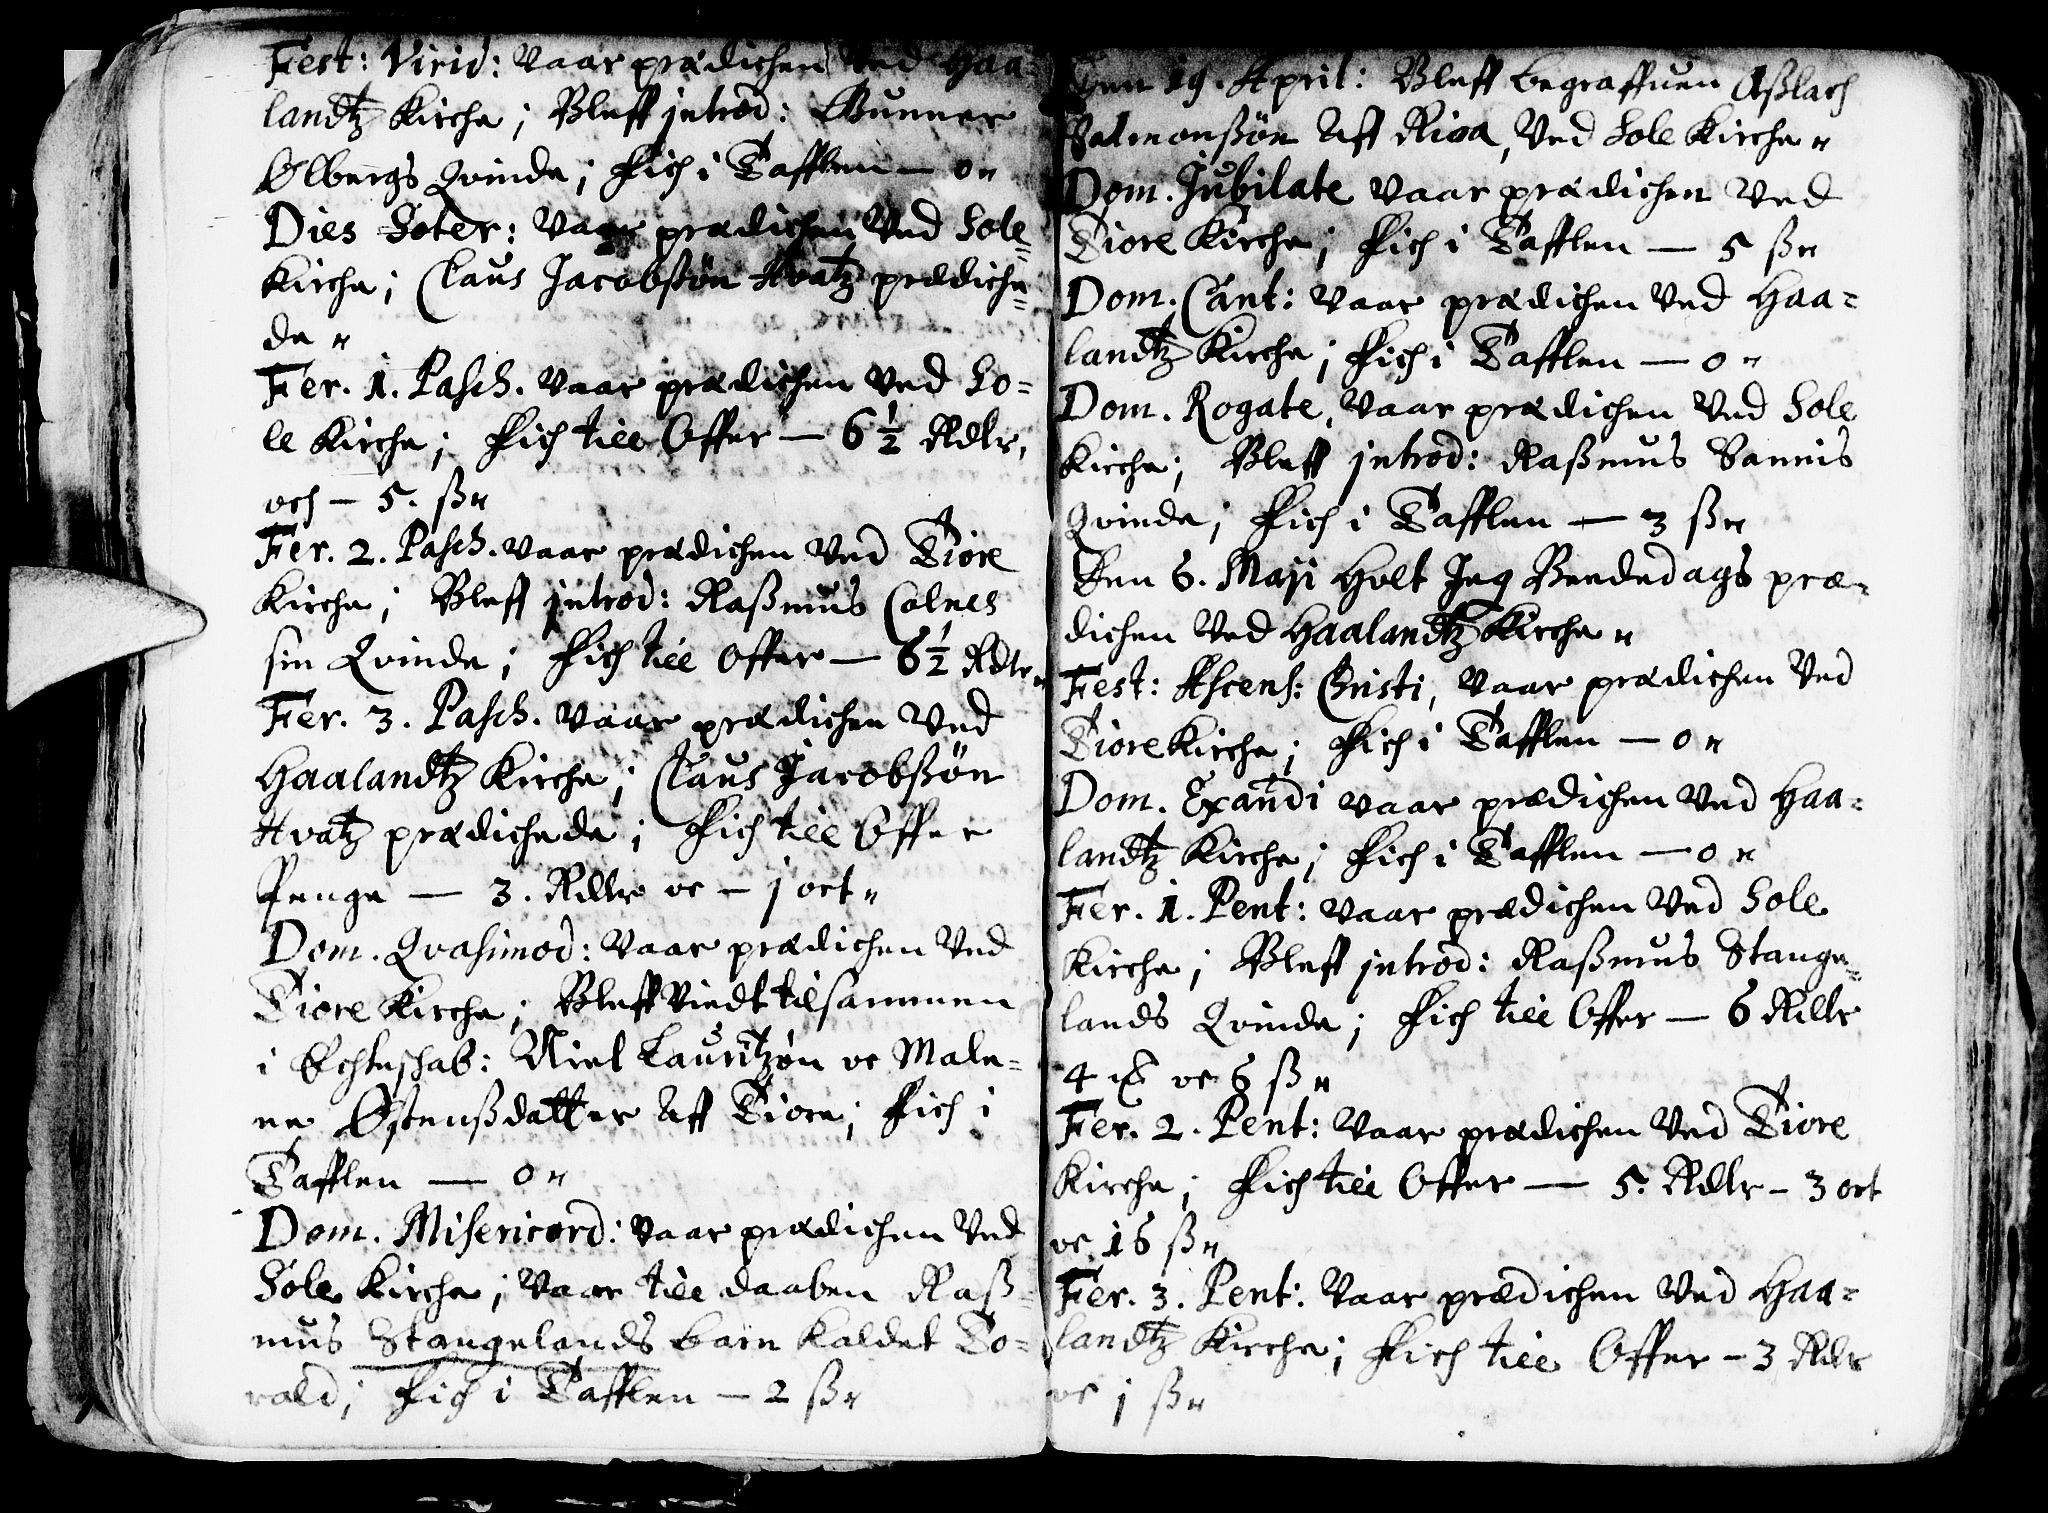 Fest: Virid: vaar prædichen ved Haa-
landtz Kirche; Bleff introd: Gunner
Ølbergs Qvinde; Fich i Tafflen — 0 "
Dies Soter: vaar prædichen ved Sole-
Kirche; Claus Jacobßøn Hvatz prædiche-
de "
Fer. 1. Pasch. vaar prædichen ved So-
le Kirche; Fich till Offer — 6½ Rdlr,
och — 5. ß "
Fer. 2. Pasch. vaar prædichen ved Tiore
Kirche; Bleff introd: Raßmus Colnes
sin Qvinde; Fich till Offer — 6½ Rdlr "
Fer. 3. Pasch. vaar prædichen ved
Haalandtz Kirche; Claus Jacobßøn
Hvatz prædichede; Fich till Offer
Penge — 3. Rdlr oc — j ort "
Dom. Qvasimod: vaar prædichen ved
Tiore Kirche; Bleff viedt tilsammen
i Echteschab: Niel Lauritzøn oc Male-
ne Østensßdatter Aff Tiore; Fich i
Tafflen — 0 "
Dom. Misericord: vaar prædichen ved
Sole Kirche; vaar till daaben Raß-
mus Stangelands barn kaldet To-
rald; Fich i Tafflen — 2 ß "
Den 19. April: Bleff begraffuen Aßlach
Salmonßøn Aff Risa, ved Sole Kirche "
Dom. Jubilate vaar prædichen ved
Tiore Kirche; Fich i Tafflen — 5 ß "
Dom. Cant: vaar prædichen ved Haa-
landtz Kirche; Fich i Tafflen — 0 "
Dom. Rogate, vaar prædichen ved Sole
Kirche; Bleff introd: Raßmus Sømis
Qvinde; Fich i Tafflen — 3 ß "
Den 6. Maji Holt Jeg Beededags præ-
dichen ved Haalandtz Kirche "
Fest: Ascens: Christi, vaar prædichen ved
Tiore Kirche; Fich i Tafflen — 0 "
Dom. Exaudi vaar prædichen ved Haa-
landtz Kirche; Fich i Tafflen — 0 "
Fer. 1. Pent: vaar prædichen ved Sole
Kirche; Bleff introd: Raßmus Stange-
lands Qvinde; Fich till Offer — 6 Rdlr
4 oc 6 ß "
Fer. 2. Pent: vaar prædichen ved Tiore
Kirche; Fich till Offer — 5. Rdlr — 3 ort
oc 16 ß "
Fer. 3. Pent: vaar prædichen ved Haa-
landtz Kirche; Fich till Offer — 3 Rdlr
oc j ß "